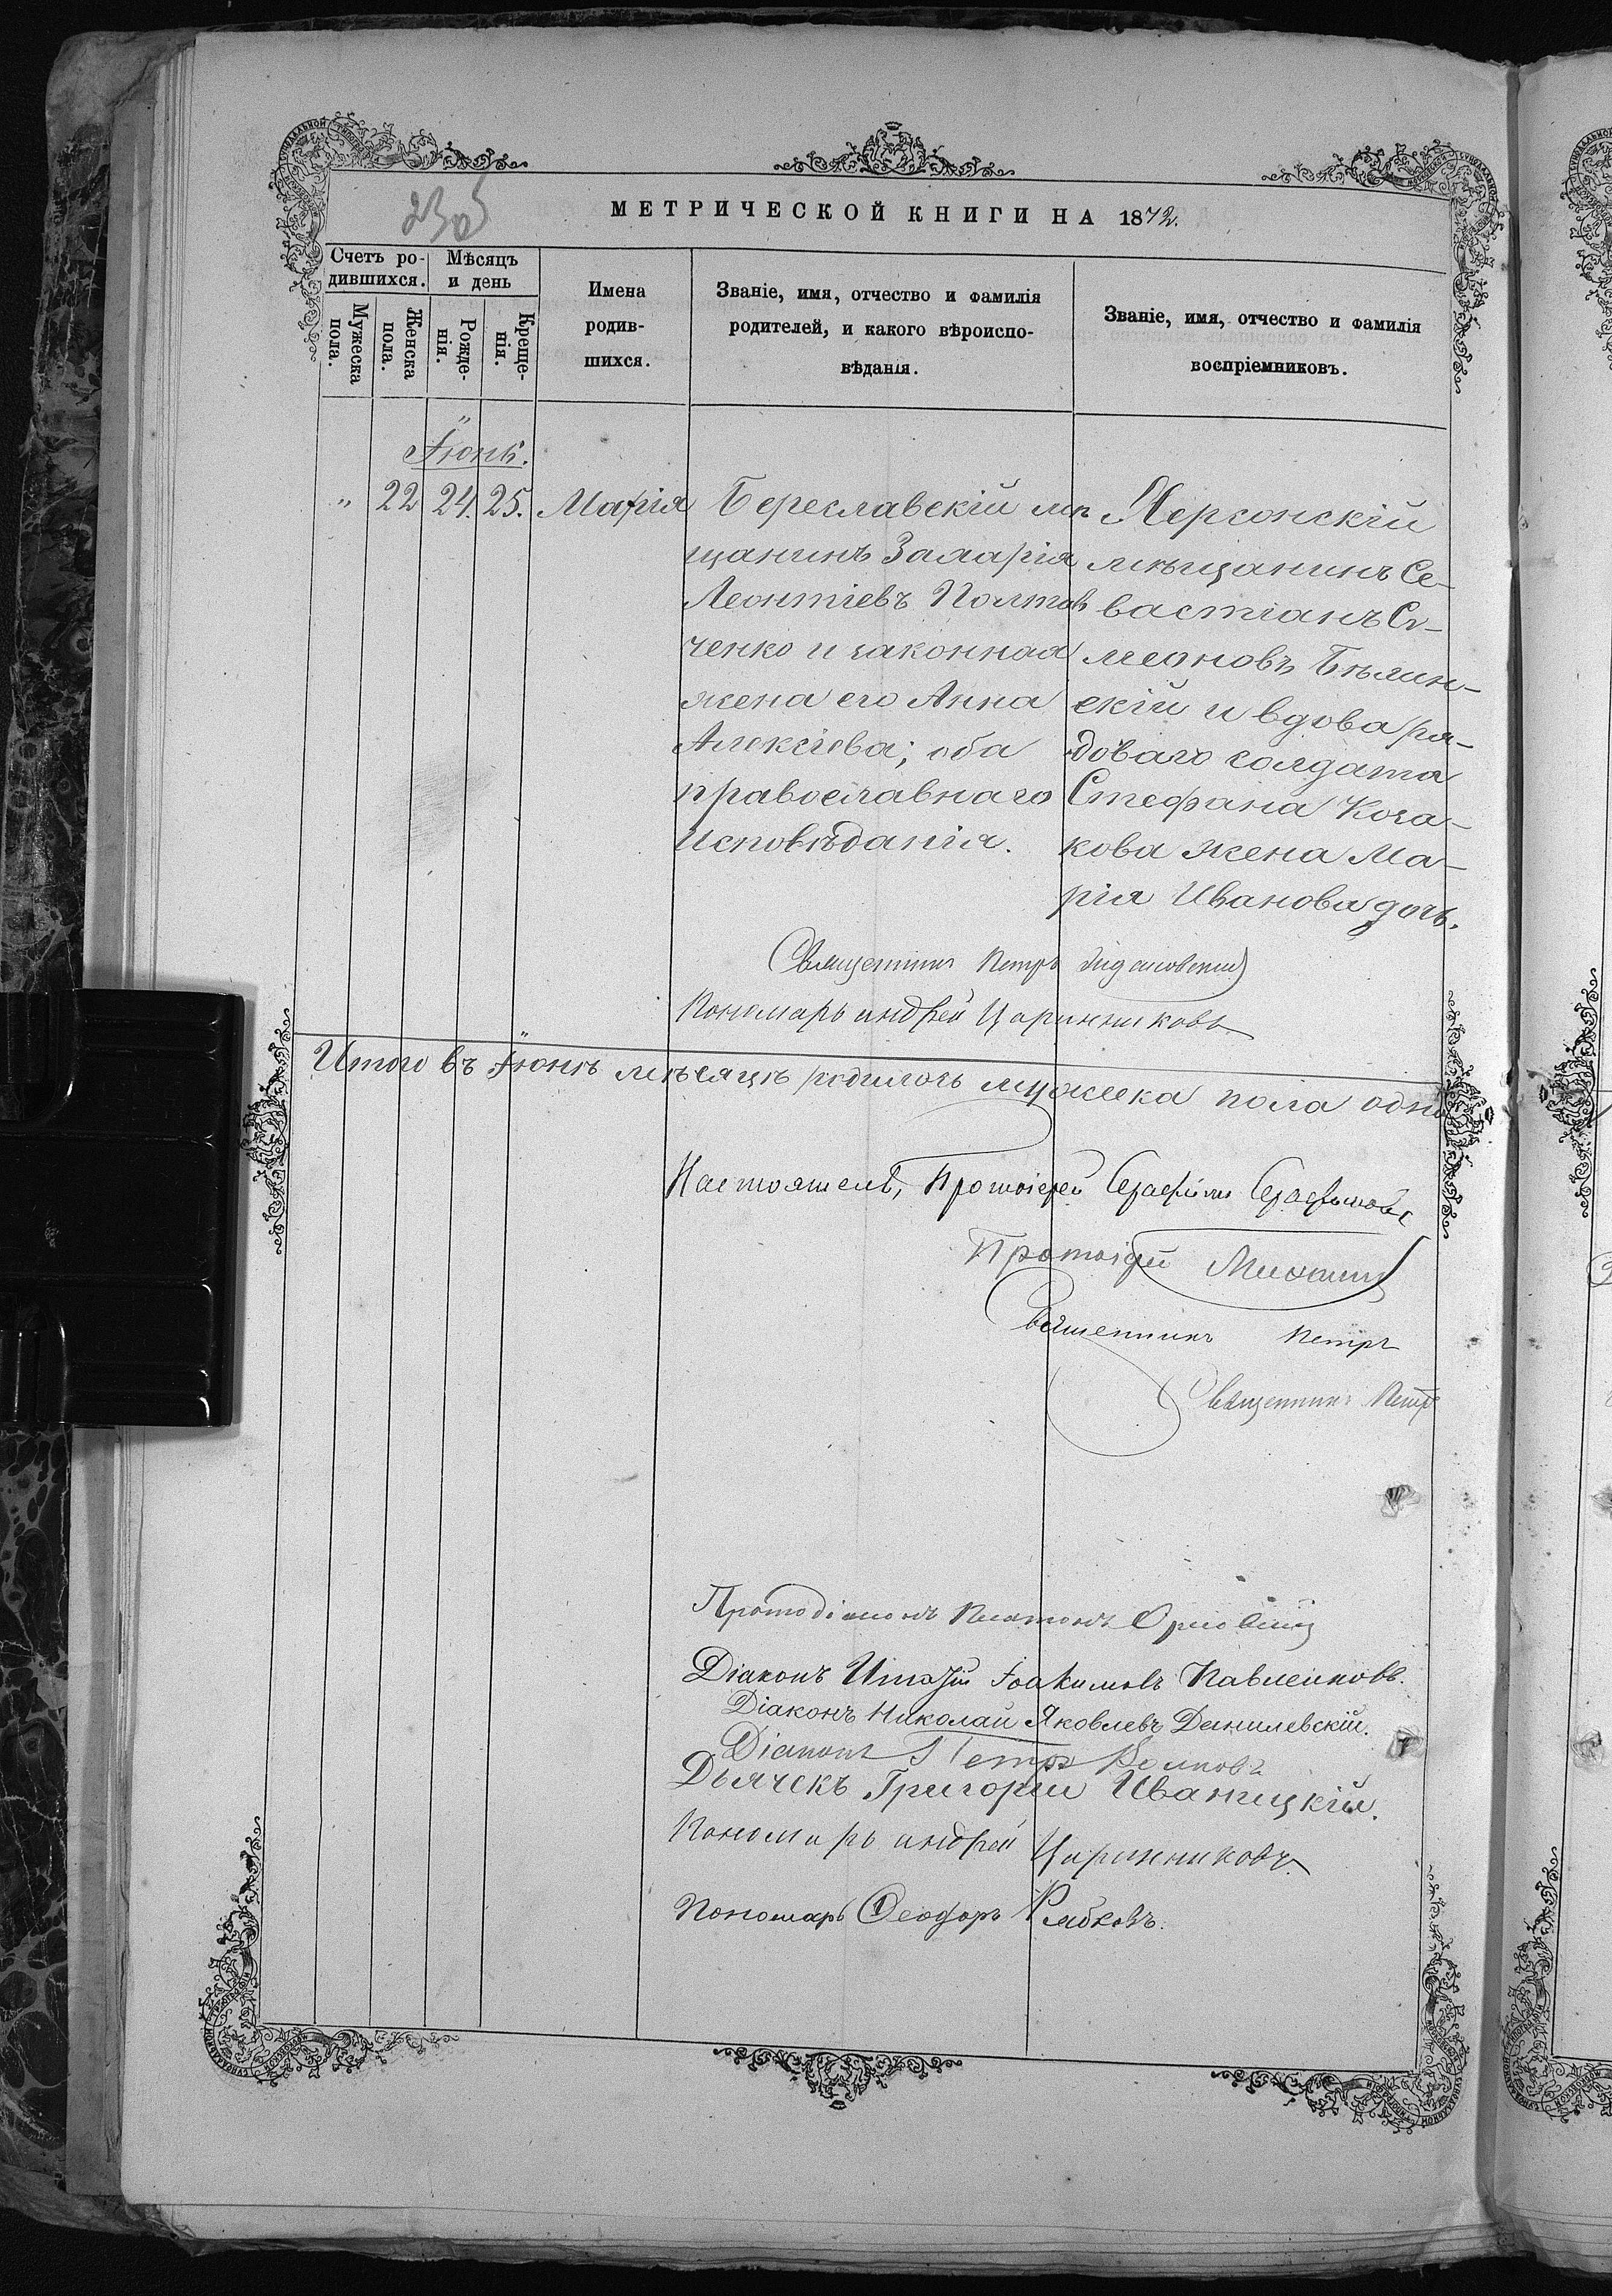 МЕТРИЧЕСКОЙ КНИГИ НА 1872.
Счетъ ро-
дившихся.
Мѣсяцъ
и день
Имена
родив-
шихся.
Званіе, имя, отчество и фамилія
родителей, и какого вѣроиспо-
вѣданія.
Званіе, имя, отчество и фамилія
воспріемниковъ.
Мужеска
пола.
Женска
пола.
Рожде-
нія.
Креще-
нія.
Іюнь.
" 22 24. 25. Марія
Береславскій мѣ
щанинъ Захарія
Леонтіевъ Полтав
ченко и законная
жена его Анна
Алексіева; оба
православнаго
исповѣданія.
Херсонскій
мѣщанинъ Се-
вастіанъ Си-
меоновъ Бѣлин-
скій и вдова ря-
доваго солдата
Стефана Коза-
кова жена Ма-
рія Иванова дочь.
Священникъ Петръ
Пономарь Андрей Царинниковъ
Итого въ Іюнѣ мѣсяцѣ родилось мужеска пола одно
Настоятель, Протоіерей Серафимъ Серафимовъ
Протоіерей Михаилъ
Священникъ Петръ
Священникъ Петръ
Протодіаконъ Платонъ Орловскій
Діаконъ Іоакимовъ Павленковъ.
Діаконъ Николай Яковлевъ Данилевскій.
Діаконъ Петръ
Дьячекъ Григорій Иваницкій.
Пономарь Андрей Царинниковъ.
Пономарь Ѳеодоръ Рябковъ.